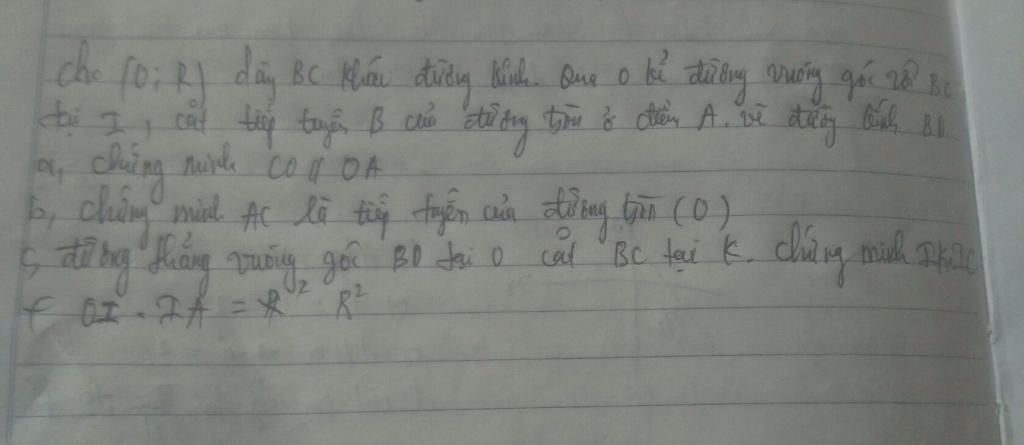 Cho (O; R) dây BC khác đường kính. Qua O kẻ đường vuông góc với BC
tại I, cắt tiếp tuyến B của đường tròn ở điểm A. vẽ đường kính BD
a, chứng minh CO // OA
b, chứng minh AC là tiếp tuyến của đường tròn (O)
c, đường thẳng vuông góc BD tại O cắt BC tại K. chứng minh IK.IC
+ OI . IA = R²